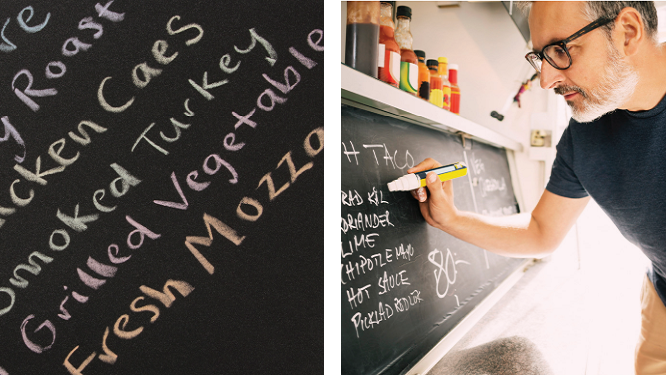 Roast
icken Caes
Smoked Turkey
Grilled Vegetable
Fresh Mozza
H TACO
RAD KÅL
KORIANDER
LIME
CHIPOTLE MAYO
HOT SAUCE
PICKLAD RÖDLÖK
80:-